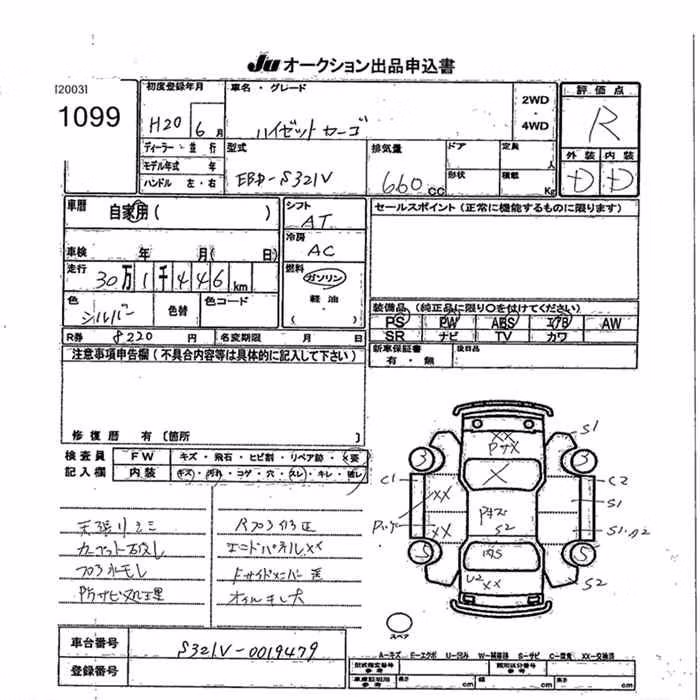 Ju オークション出品申込書
[2003]
1099
初度登録年月
H20 6月
車名・グレード
ハイゼットカーゴ
2WD
・
4WD
評価点
R
外装 内装
D D
ディーラー・並行
モデル年式 年
ハンドル 左・右
型式
EBD-S321V
排気量
660cc
ドア
形状
定員
人
積載
Kg
車歴
自家用( )
シフト
AT
セールスポイント(正常に機能するものに限ります)
冷房
AC
車検 年 月( 日)
走行
30万1千446km
燃料
ガソリン
軽油
( )
色
シルバー
色替
色コード
装備品(純正品に限り○を付けてください)
PS PW ABS エアB AW
SR ナビ TV カワ
R券 8220円 名変期限 月 日
新車保証書
有・無
後日品
注意事項申告欄(不具合内容等は具体的に記入して下さい)
修復歴 有[箇所 ]
検査員
記入欄
FW キズ・飛石・ヒビ割・リペア跡・X要
内装 キズ・汚れ・コゲ・穴・スレ・キレ・破レ
XX
X
3 3
S1
C1 C2
XX S1
XX S2
5 5
U2 XX S2
天張りシミ
フロアサビ
Rフロア修正
エンドパネルXX
スペア
A-キズ E-エクボ U-凹み W-補修跡 S-サビ C-腐食 XX-交換済
車台番号
S321V-0019479
登録番号
型式指定番号
参考
類別区分番号
参考
車庫証明用
参考
長さ cm
巾 cm
高さ cm